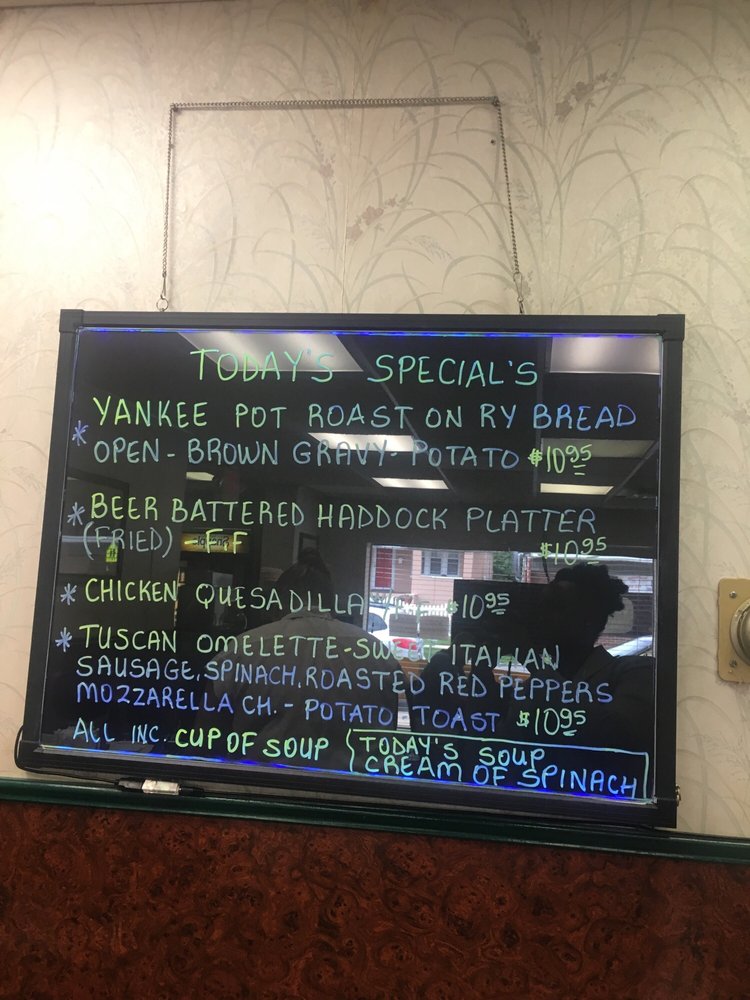 TODAY'S SPECIAL'S
YANKEE POT ROAST ON RY BREAD
* OPEN - BROWN GRAVY - POTATO $10.95
* BEER BATTERED HADDOCK PLATTER
(FRIED) - FF $10.95
* CHICKEN QUESADILLA $10.95
* TUSCAN OMELETTE - SWEET ITALIAN
SAUSAGE, SPINACH, ROASTED RED PEPPERS
MOZZARELLA CH. - POTATO TOAST $10.95
ALL INC. CUP OF SOUP
TODAY'S SOUP
CREAM OF SPINACH